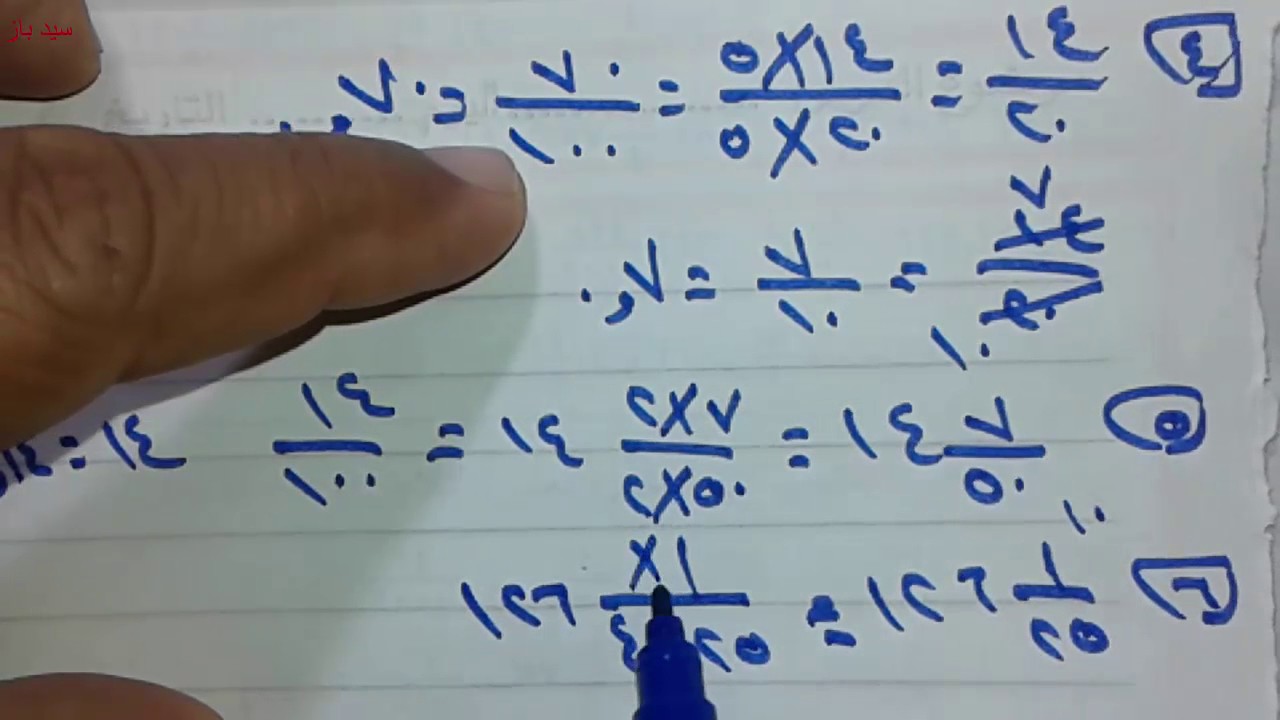 سيد باز
٤ ١٤/٢٠ = ١٤×٥/٢٠×٥ = ٧٠/١٠٠ = ٠,٧
١٤/٢٠ ٧/١٠ = ٧/١٠ = ٠,٧
٥ ١٤ ٧/٥٠ = ١٤ ٧×٢/٥٠×٢ = ١٤ ١٤/١٠٠ = ١٤
٦ ١٢٦ ١/٢٥ = ١٢٦ ١×/٢٥×٤